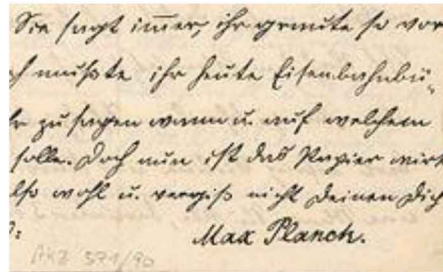 Sie sagt immer, ihr graute so vor
ch mußte ihr heute Eisenbahnbü-
r zu sagen wann u. auf welchem
solle. Doch nun ist das Papier wirk
lso wohl u. vergiß nicht Deinen Dich
Max Planck.
AKZ 571/90